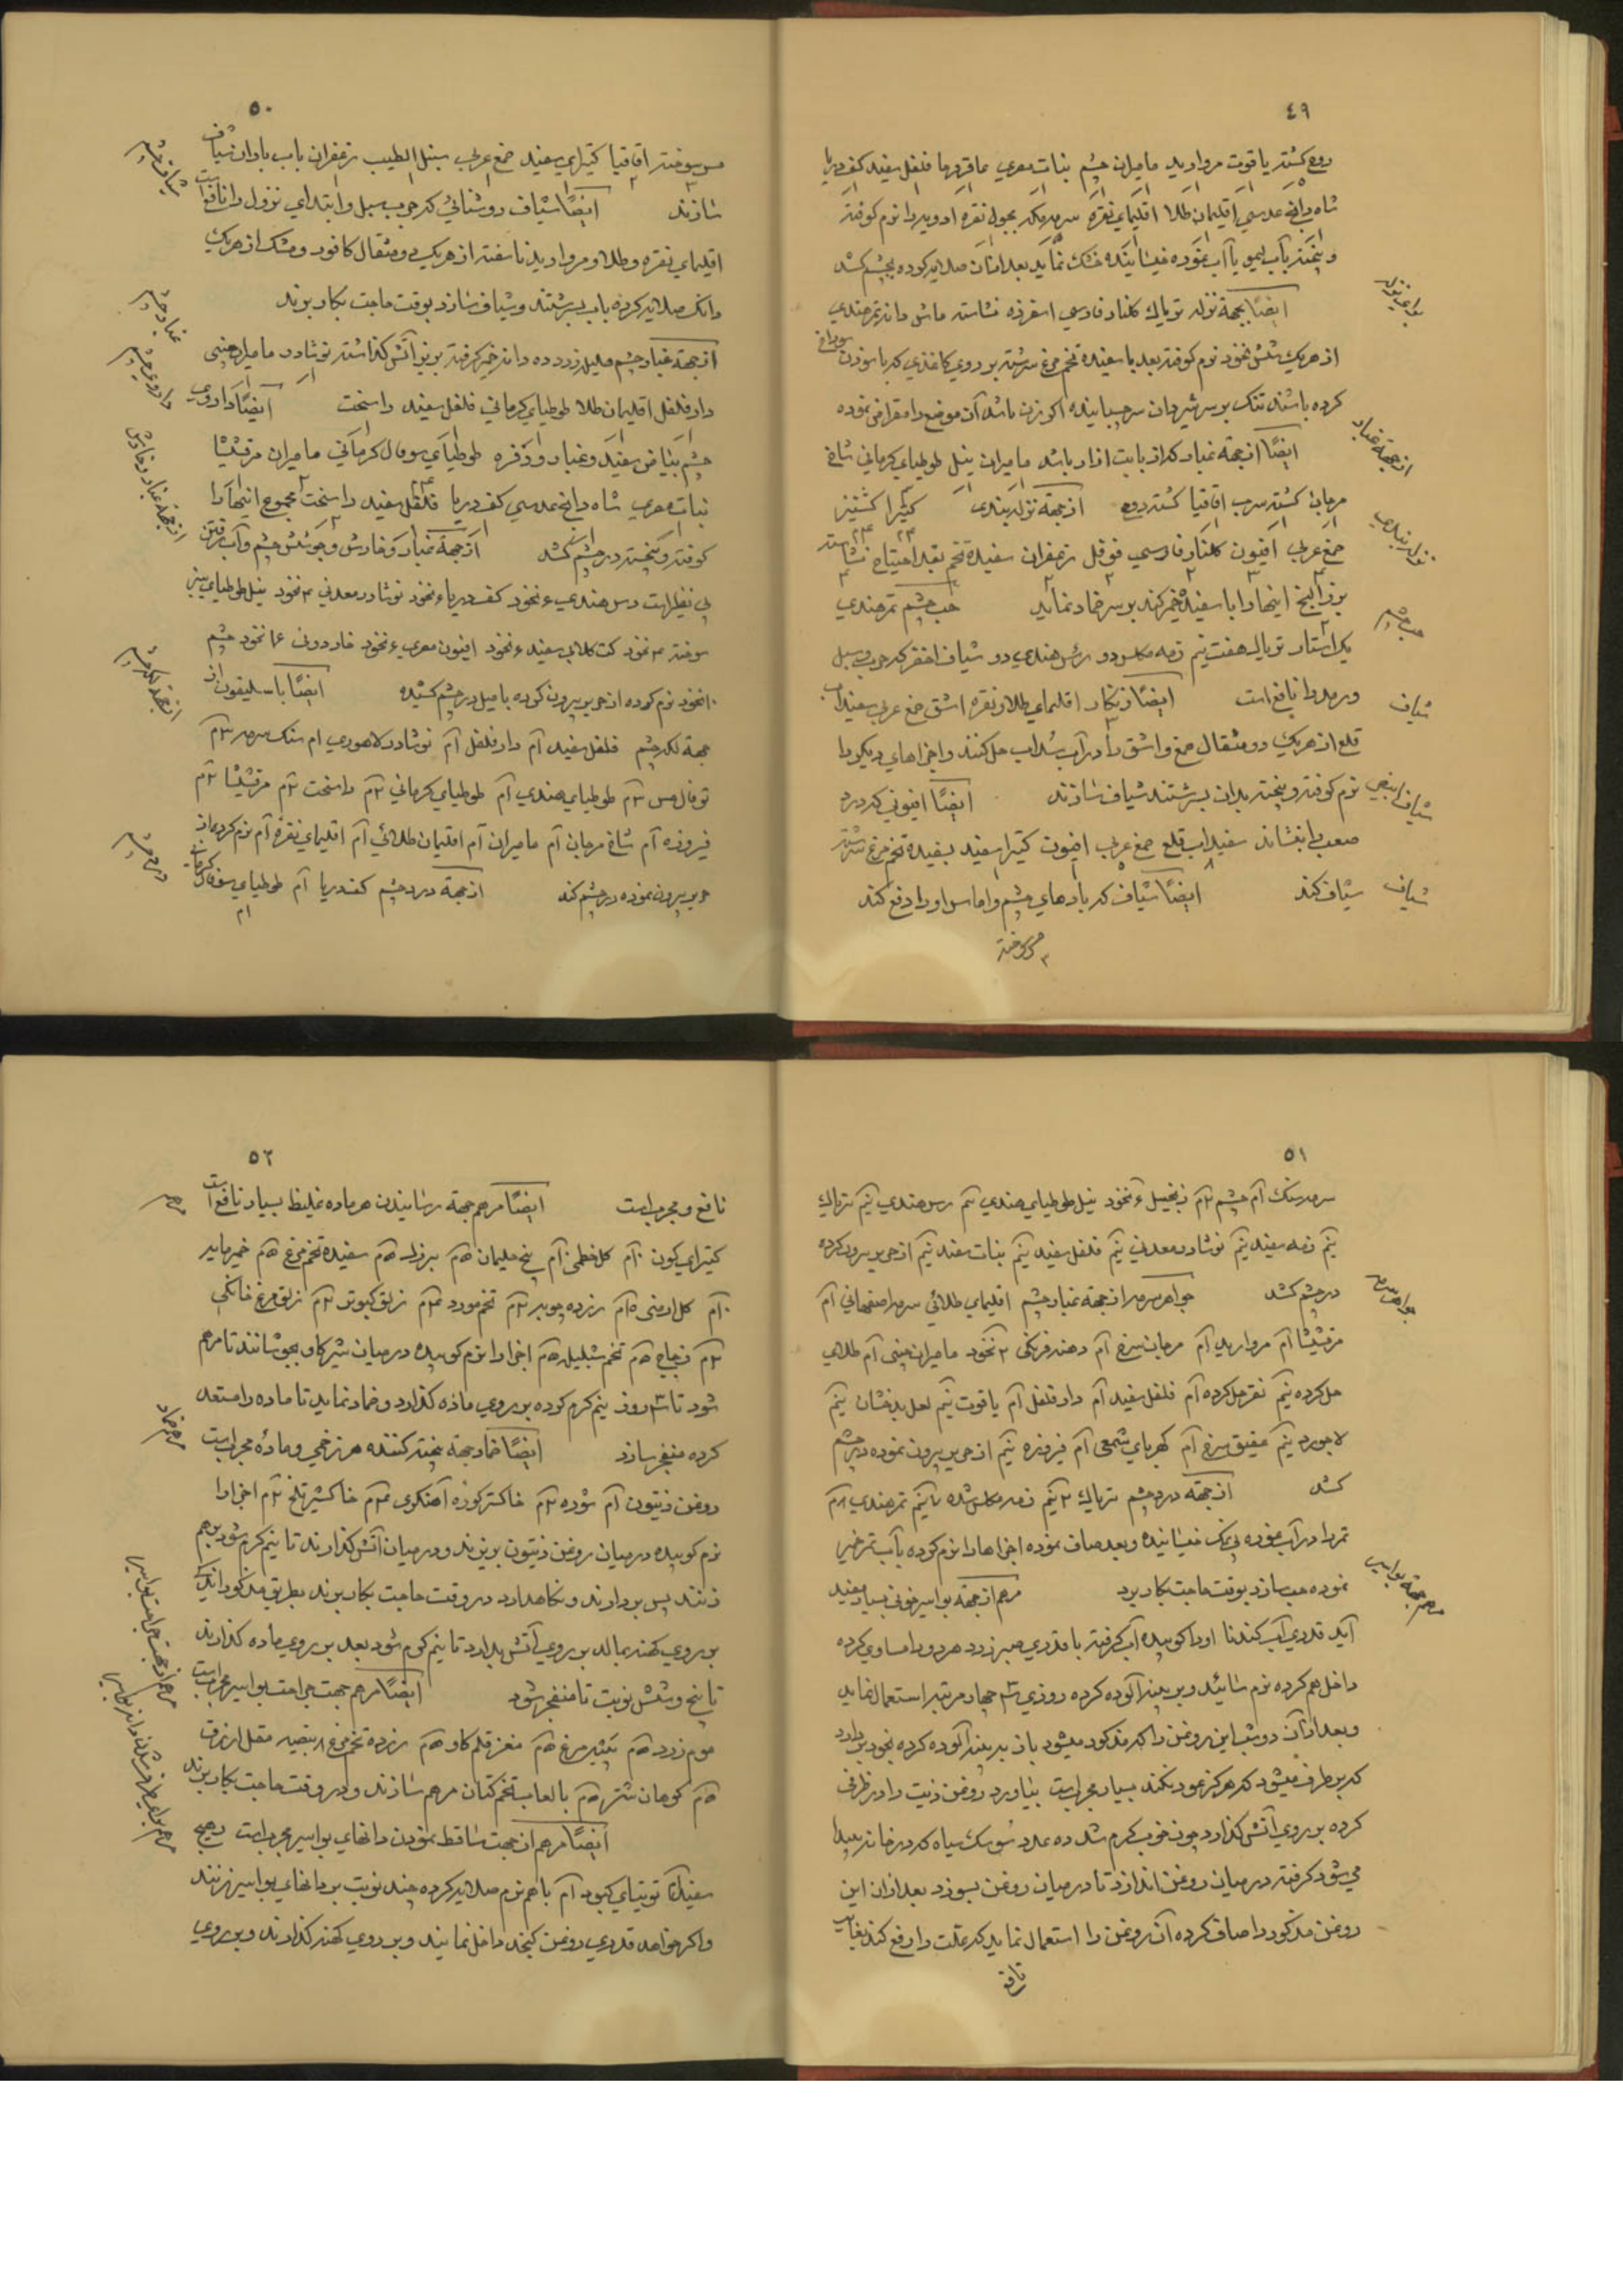 ٤٩
روی کشته یاقوت مروارید مامیران چشم نبات مصری عاقرقرحا فلفل سفید کف دریا
شاه دانج عدسی اقلیمان طلا اقلیمای نقره سرمه مکه بجول نقره ادویه را نرم کوفته
و بیخته بآب لیمو یا آب غوره خیسانیده خشک نماید بعد ازان صلایه کرده بچشم کشد
ایضًا بجهة نزله تریاک کلنار فارسی اسفرزه نشاسته ماش دانه تمرهندی
از هریک شش نخود نرم کوفته بعد با سفیده تخم مرغ سرشته بر روی کاغذی که با سوزن سوراخ
کرده باشند تنک بر سر شریان سر چسبانیده اکر زن باشد آن موضع را مقراض نموده
ایضًا از جهة غبار که از بابت ازار باشد مامیران نیل طوطیای کرمانی شاخ
مرجان کشته سرب اقاقیا کشته روی از جهة نزله بندی کتیرا کشنیز
صمغ عربی افیون کلنار فارسی فوفل زعفران سفیده تخم بقدر احتیاج نشاسته
بزر البنج اینها را با سفیده خمیر کند بر سر ضماد نماید حب چشم تمرهندی
یک استار تریاک هفت نیم زمه مکلس دو رئس هندی دو شیاف اخضر که جرب و سبل
و رمد را نافع است ایضًا زنکار اقلیمای طلا و نقره اشق صمغ عربی سفیداب
قلع از هریک دو مثقال صمغ و اشق را در آب سداب حل کنند و اجزاهای دیکر را
نرم کوفته و بیخته بدان بسرشتند شیاف سازند ایضًا افیونی که درد
صعب را بنشاند سفیداب قلع صمغ عربی افیون کتیرا سفید بسفیده تخم مرغ سرشته
شیاف کند ایضًا شیاف که بادهای چشم و اماس او را دفع کند
مس سوخته
برای نزله
از جهة غبار
نزله بندی
حب چشم
شیاف
شیاف ابیض
شیاف
٥٠
مس سوخته اقاقیا کتیرای سفید صمغ عربی سنبل الطیب زعفران باب باران شیاف
سازند ایضًا شیاف روشنائی که جرب سبل و ابتدای نزول را نافع است
اقلیمای نقره و طلا و مروارید ناسفته از هریک دو مثقال کافور و مشک از هریک
دانک صلایه کرده باب بسرشتند و شیاف سازد بوقت حاجت بکار برند
از جهة غبار چشم هلیله زرد ده دانه خمیر کرفته بر نو آتش کذاشته نوشادر مامیران چینی
دار فلفل اقلیمان طلا طوطیای کرمانی فلفل سفید راسخت ایضًا داروی
چشم بیاض سفید و غبار و زفره طوطیای سوفال کرمانی مامیران مرقشیشا
نبات مصری شاه دانج عدسی کف دریا فلفل سفید راسخت مجموع اینها را
کوفته و بیخته در چشم کشد از جهة غبار و خارش و جوشش چشم و آب رفتن
بی نظیر است رس هندی ٤ نخود کف دریا ٤ نخود نوشادر معدنی ٣ نخود نیل طوطیای سبز
سوخته ٣ نخود کت کلابی سفید ٤ نخود افیون مصری ٤ نخود
نخود نرم کرده از حریر بیرون کرده با میل در چشم کشیده ایضًا باسلیقون از
جهة لکه چشم فلفل سفید ١م دار فلفل ١م نوشادر لاهوری ١م سنک سرمه ٣م
توفال مس ٢م طوطیای هندی ١م طوطیای کرمانی ٢م راسخت ٢م مرقشیشا ٢م
فیروزه ١م شاخ مرجان ١م مامیران ١م اقلیمان طلائی ١م اقلیمای نقره ١م نرم کرده از
حریر بیرون نموده در چشم کند از جهة درد چشم کف دریا ١م طوطیای سفال کرمان
١م
شیاف چشم
غبار چشم
داروی چشم
از جهة غبار و خارش
از جهة لکه چشم
درد چشم
٥١
سرمه سنک ١م چشم ٢م زنجبیل ٤ نخود نیل طوطیای هندی نیم رس هندی نیم تریاک
نیم زمه سفید نیم نوشادر معدنی نیم فلفل سفید نیم نبات سفید نیم از حریر بیرون کرده
در چشم کشد جواهر سرمه از جهة غبار چشم اقلیمای طلائی سرمه اصفهانی ١م
مرقشیشا ١م مروارید ١م مرجان سرخ ١م دهنه فرنکی ٢ نخود مامیران چینی ١م طلای
حل کرده نیم نقره حل کرده ١م فلفل سفید ١م دار فلفل ١م یاقوت نیم لعل بدخشان نیم
لاجورد نیم عقیق سرخ ١م کهربای شمعی ١م فیروزه نیم از حریر بیرون نموده در چشم
کشد از جهة درد چشم تریاک ٢ نیم زمه مکلس شده نیم تمرهندی ٨م
تمر را در آب نموده بی نمک خیسانیده و بعد صاف نموده اجزاها را نرم کوده بآب تمر خمیر
نموده حب سازد بوقت حاجت بکار برد مرهم از جهة بواسیر خونی بسیار مفید
آید قدری آب کندنا او را کوبیده آب کرفته با قدری صبر زرد هردو را مساوی کرده
داخل هم کرده نرم سائید و بر پنبه آلوده کرده روزی سه چهار مرتبه استعمال نماید
و بعد از آن دو شب این روغن را که مذکور میشود باز بر پنبه آلوده کرده بخود بردارد
که برطرف میشود که هرکز عود نکند بسیار مجرب است بیاورد روغن زیت را در ظرفی
کرده بر روی آتش کذارد چون خوب کرم شد ده عدد سوسک سیاه که در خانه پیدا
می شود کرفته در میان روغن اندازد تا در میان روغن بسوزد بعد ازان این
روغن مذکور را صاف کرده آن روغن را استعمال نماید که علت را رفع کند بغایت
نافع
جواهر سرمه
مرهم جهة بواسیر
٥٢
نافع و مجرب است ایضًا مرهم جهة رسانیدن هر ماده غلیظ بسیار نافع است
کتیرای کون ١٠م کل خطمی ١٠م بیخ حلیمان ٥م ٥م سفیده تخم مرغ ٥م خمیر مایه
١٠م کل ارمنی ٥م زرده چوبه ٢م تخم مورد ٣م زبق کبوتر ٢م زبق مرغ خانکی
٢م زجاج ٥م تخم شنبلیله ٥م اجزا را نرم کوبیده در میان شیر کاو بجوشانند تا مرهم
شود تا ٣ روز نیم کرم کرده بر روی ماده کذارد و ضماد نماید تا ماده را مستعد
کرده منفجر سازد ایضًا ضماد جهة پخته کننده هر زخمی و ماده مجرب است
روغن زیتون ١م شوره ٢م خاکستر کوزه آهنکری ٣م خاکشیر تلخ ٢م اجزا را
نرم کوبیده در میان روغن زیتون بریزند و در میان آتش کذارند تا نیم کرم شود برهم
زنند پس بردارند و نکاهدارد در وقت حاجت بکار برند بطریق مذکور اندکی
بر روی کهنه بمالد بر روی آتش بدارد تا نیم کرم شود بعد بر روی ماده کذارند
تا پنج و شش نوبت تا منفجر شود ایضًا مرهم جهت جراحت بواسیر مجرب است
موم زرد ٥م پیه مرغ ٥م مغز قلم کاو ٥م زرده تخم مرغ ٨ بیضه مقل ازرق
٥م کوهان شتر ٥م بالعاب تخم کتان مرهم سازند و در وقت حاجت بکار برند
ایضًا مرهم از جهت ساقط نمودن دانهای بواسیر مجرب است رهج
سفید توتیای کبود ١م با هم نرم صلایه کرده چند نوبت بر دانهای بواسیر زنند
و اکر خواهد قدری روغن کنجد داخل نمایند و بر روی کهنه کذارند و بر روی
مرهم
مرهم ضماد
مرهم از جهت جراحت بواسیر